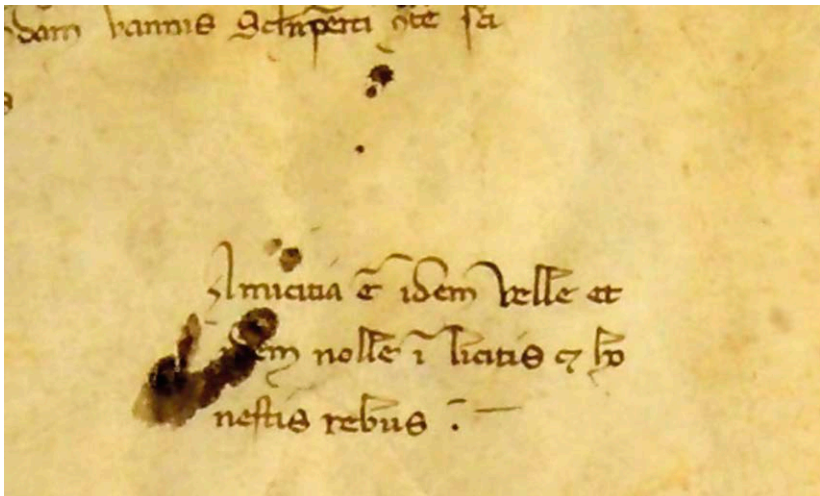 dam vannus
Amicitia ē idem velle et
em nolle ī licitis ⁊ ho
nestis rebus :—